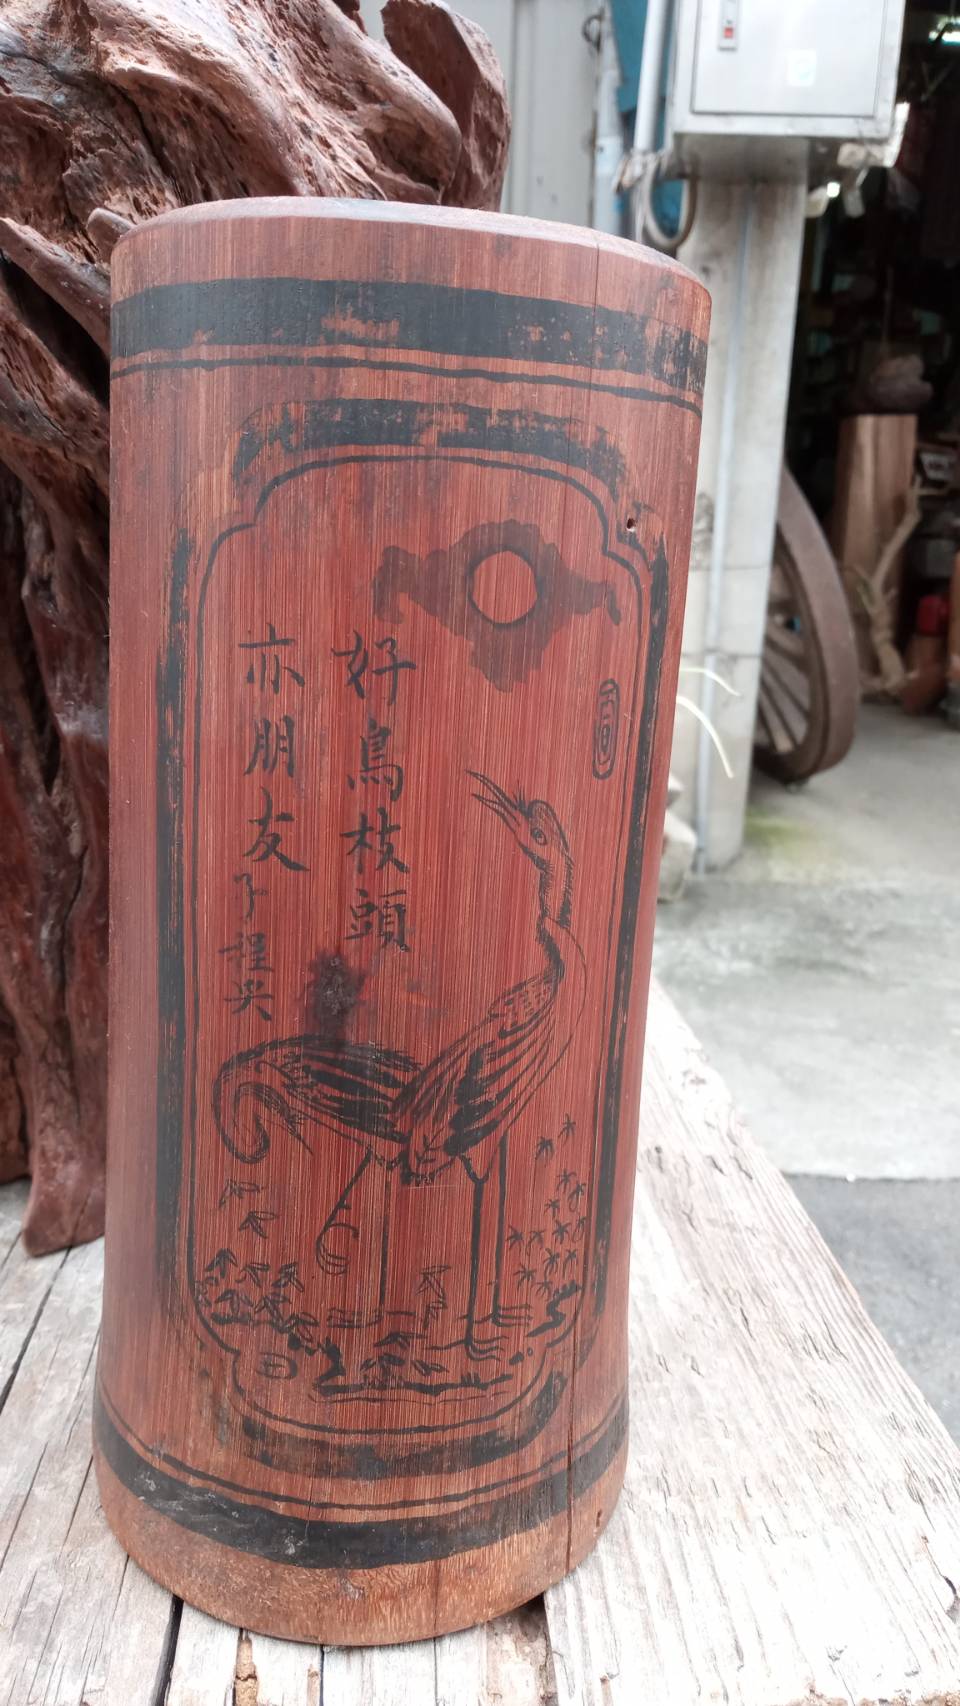 好鳥枝頭
亦朋友
子程吳